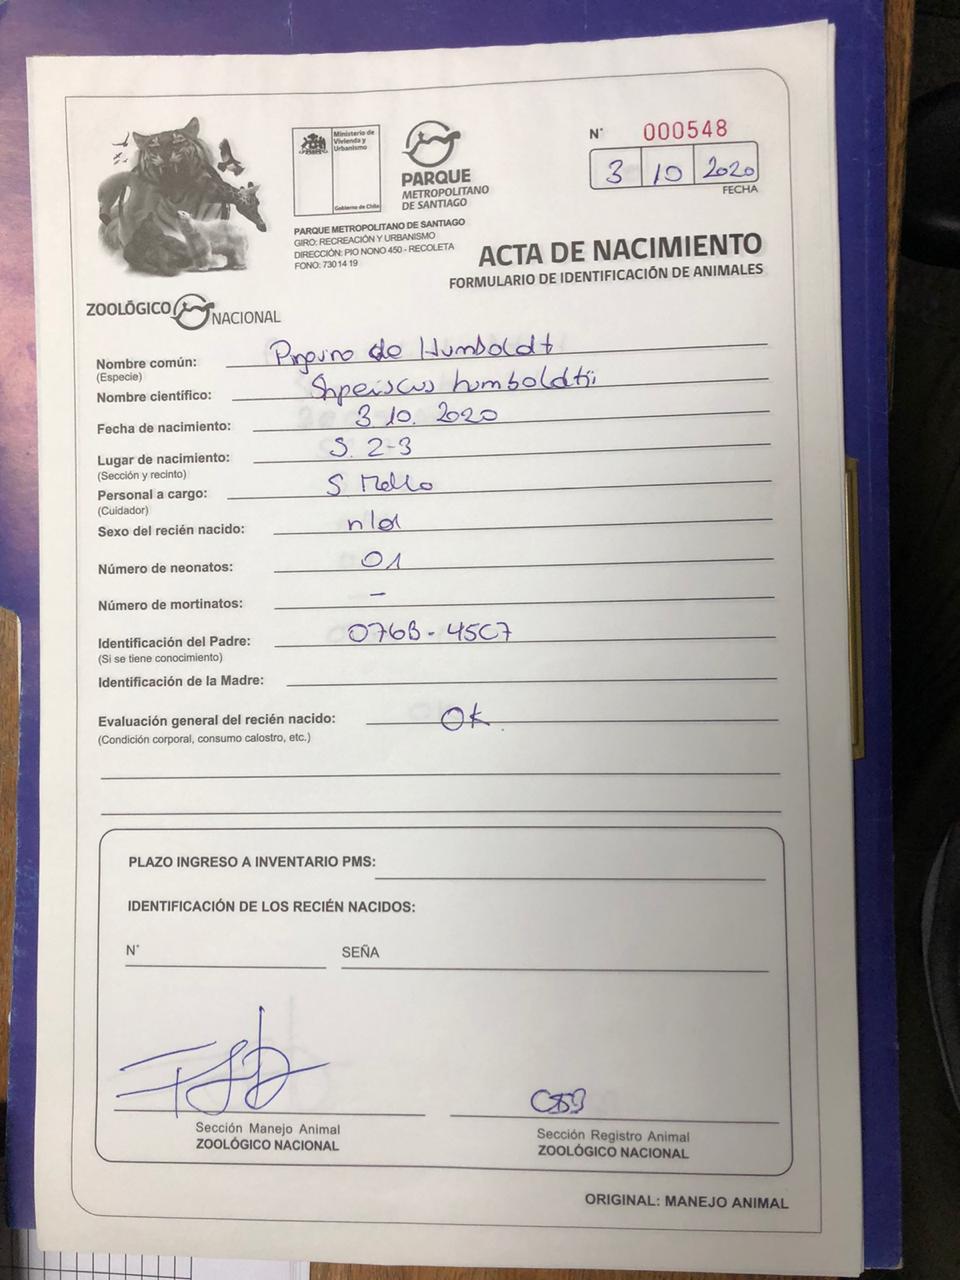 Ministerio de
Vivienda y
Urbanismo
Gobierno de Chile
PARQUE
METROPOLITANO
DE SANTIAGO
N° 000548
3 10 2020
FECHA
PARQUE METROPOLITANO DE SANTIAGO
GIRO: RECREACIÓN Y URBANISMO
DIRECCIÓN: PIO NONO 450 - RECOLETA
FONO: 730 14 19
ACTA DE NACIMIENTO
FORMULARIO DE IDENTIFICACIÓN DE ANIMALES
ZOOLÓGICO NACIONAL
Nombre común: Pinguino de Humboldt
(Especie)
Nombre científico: Spheniscus humboldtii
Fecha de nacimiento: 3 10. 2020
Lugar de nacimiento: S. 2-3
(Sección y recinto)
Personal a cargo: S Mello
(Cuidador)
Sexo del recién nacido: n/d
Número de neonatos: 01
Número de mortinatos: -
Identificación del Padre: 076B - 45C7
(Si se tiene conocimiento)
Identificación de la Madre:
Evaluación general del recién nacido: OK.
(Condición corporal, consumo calostro, etc.)
PLAZO INGRESO A INVENTARIO PMS:
IDENTIFICACIÓN DE LOS RECIÉN NACIDOS:
N° SEÑA
Sección Manejo Animal
ZOOLÓGICO NACIONAL
Sección Registro Animal
ZOOLÓGICO NACIONAL
ORIGINAL: MANEJO ANIMAL